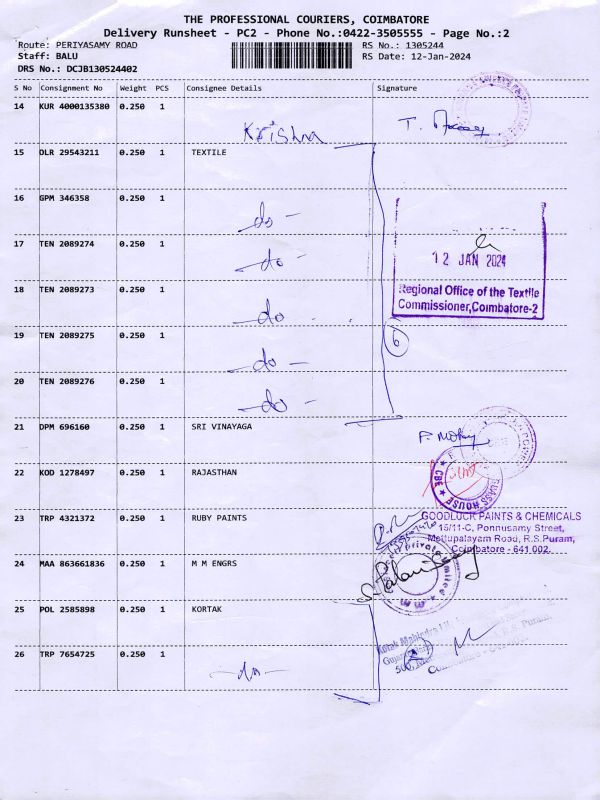 THE PROFESSIONAL COURIERS, COIMBATORE
Delivery Runsheet - PC2 - Phone No.:0422-3505555 - Page No.:2
Route: PERIYASAMY ROAD RS No.: 1305244
Staff: BALU RS Date: 12-Jan-2024
DRS No.: DCJB130524402
S No Consignment No Weight PCS Consignee Details Signature
14 KUR 4000135380 0.250 1 Krishna
15 DLR 29543211 0.250 1 TEXTILE
16 GPM 346358 0.250 1 - do -
17 TEN 2089274 0.250 1 - do -
12 JAN 2024
18 TEN 2089273 0.250 1 - do -
Regional Office of the Textile
Commissioner, Coimbatore-2
19 TEN 2089275 0.250 1 - do -
6
20 TEN 2089276 0.250 1 - do -
21 DPM 696160 0.250 1 SRI VINAYAGA
22 KOD 1278497 0.250 1 RAJASTHAN
CBE
HOUSE
23 TRP 4321372 0.250 1 RUBY PAINTS
GOODLUCK PAINTS & CHEMICALS
15/11-C, Ponnusamy Street,
Mettupalayam Road, R.S.Puram,
Coimbatore - 641 002.
24 MAA 863661836 0.250 1 M M ENGRS
Private Limited
25 POL 2585898 0.250 1 KORTAK
Kotak Mahindra
26 TRP 7654725 0.250 1 - do -